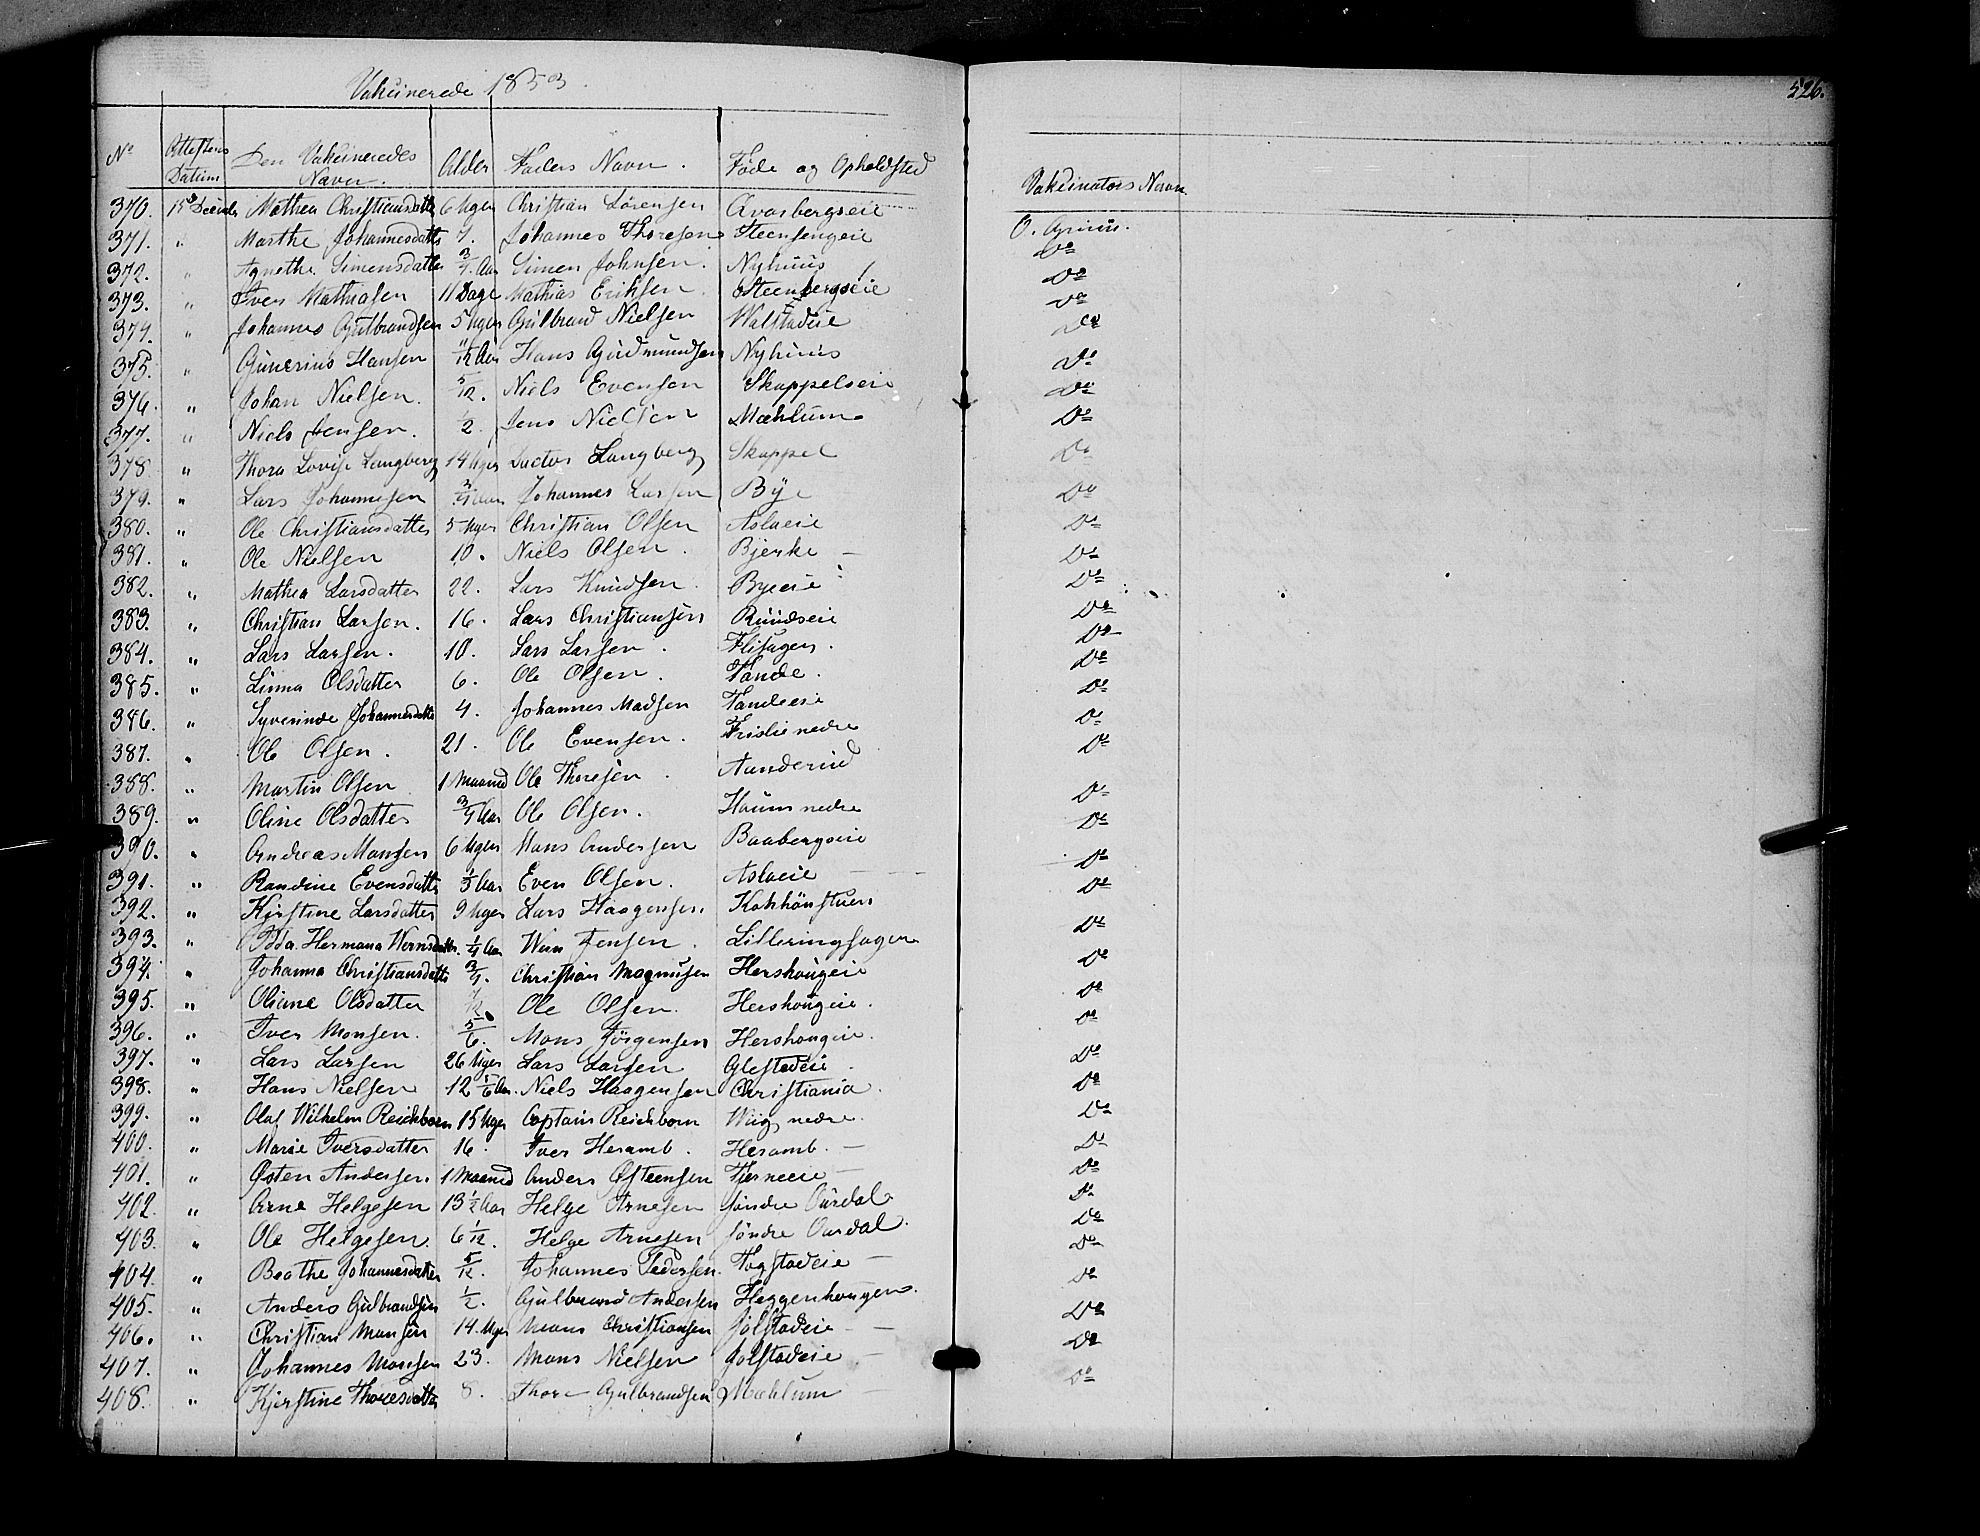 Vakcinerede 1853
526.
No Attestens Datum Den Vakcineredes Navn. Alder Faders Navn. Føde og Opholdsted Vakcinators Navn
370. 15 Decinder Mathea Christiansdatter 6 Uger Christian Lørensen Qvarbergseie O.
371. " Marthe Johannesdatter 7. Johannes Thoresen Steensengeie Do
372. " Agnethe Simensdatter 3/4 Aar Simen Johnsen. Nyhuus Do
373. " Iver Mathiasen 11 Dage Mathias Eriksen Steenbergseie Do
374. " Johannes Gulbrandsen 5 Uger Gulbrand Nielsen Walstadeie Do
375. " Gunerius Hansen 11/12 Aar Hans Gudmundsen Nyhuus Do
376. " Johan Nielsen. 5/12. Niels Evensen Skappelseie Do
377. " Niels Jensen. 1/2. Jens Nielsen Mæhlum Do
378 " Thora Lovise Langberg 14 Uger Langberg Skappel Do
379. " Lars Johannesen 3/4 Aar Johannes Larsen Bye Do
380. " Ole Christiansdatter 5 Uger Christian Olsen Aslaeie Do
381. " Ole Nielsen 10. Niels Olsen. Bjerke Do
382. " Mathea Larsdatter 22. Lars Knudsen. Byeeie Do
383. " Christian Larsen. 16. Lars Christiansen Ruudseie Do
384. " Lars Larsen. 10. Lars Larsen. Flisagen. Do
385. " Linna Olsdatter 6. Ole Olsen. Tande. Do
386. " Syverinde Johannesdatter 4. Johannes Madsen Tandeeie Do
387. " Ole Olsen. 21. Ole Evensen. Frislie nedre Do
388. " Martin Olsen 1 Maaned Ole Thoresen. Aunderud Do
389. " Oline Olsdatter 3/4 Aar Ole Olsen. Houm nedre Do
390. " Andreas Monsen 6 Uger Mons Andersen Baabergseie Do
391. " Randine Evensdatter 1/3 Aar Even Olsen. Aslaeie Do
392. " Kirstine Larsdatter 9 Uger Lars Haagensen Kokhönstuen Do
393. " Idda Hermana Wernsdatter. 1/4 Aar Wern Jensen. Lilleringsagen Do
394. " Johanna Christiansdatter 3/4. Christian Magnusen Hershougeie Do
395. " Oliane Olsdatter Ole Olsen. Hershougeie. Do
396. " Iver Monsen. 5/6. Mons Jörgensen Hershougeie. Do
397. " Lars Larsen 26 Uger Lars Larsen Glestadeie Do
398. " Hans Nielsen 12 1/6 Aar. Niels Haagensen Christiania. Do
399. " Olaf Wilhelm Reichborn 15 Uger Captain Reichborn Wiig nedre. Do
400. " Marie Iversdatter 16. Iver Heramb. Heramb. Do
401. " Østen Andersen. 1 Maaned Anders Østeensen Tjerneeie Do
402. " Arne Helgesen 13 1/2 Aar Helge Arnesen søndre Ourdal Do
403. " Ole Helgesen. 6 1/12. Helge Arnesen søndre Ourdal. Do
404. " Beathe Johannesdatter 5/12. Johannes Pedersen. Fogstadeie Do
405. " Anders Gulbrandsen 1/2. Gulbrand Andersen Heggenhougen. Do
406. " Christian Monsen 14. Uger Mons Christiansen Jølstadeie Do
407. " Johannes Monsen 23. Mons Nielsen Jølstadeie Do
408. " Kjerstine Thoresdatter 8. Thore Gulbrandsen Mæhlum Do